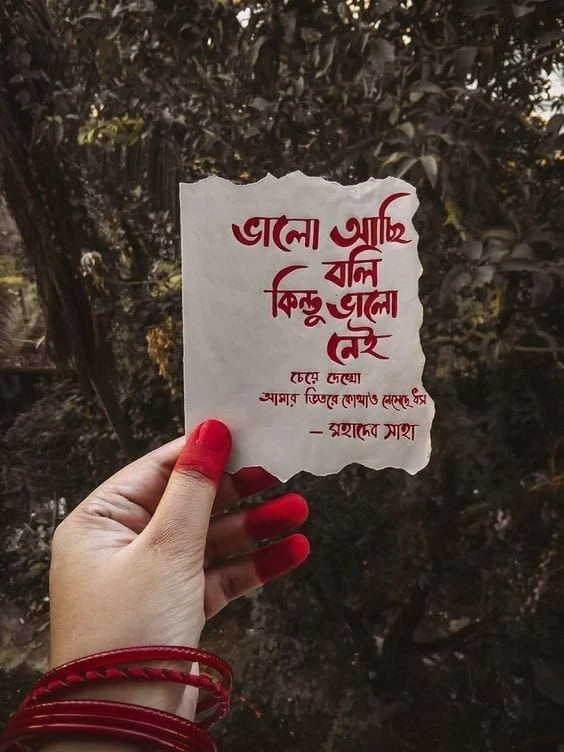 ভালো আছি
বলি
কিন্তু ভালো
নেই
চেয়ে দেখো
আমার ভিতরে কোথাও নেমেছে ধস
– মহাদেব সাহা